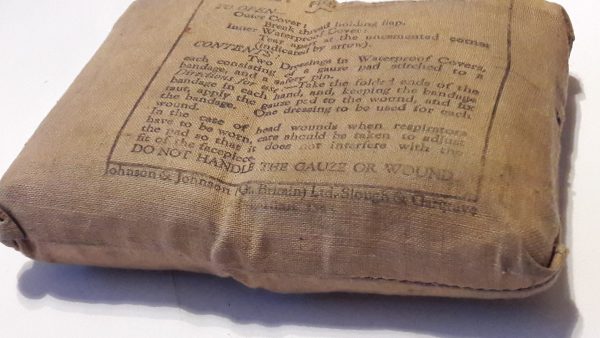 TO OPEN—
Outer Cover:
Break thread holding flap.
Inner Waterproof Cover:
Tear apart at the uncemented corner
(indicated by arrow).
CONTENTS:
Two Dressings in Waterproof Covers,
each consisting of a gauze pad stitched to a
bandage, and a safety pin.
Directions for use.—Take the folded ends of the
bandage in each hand, and, keeping the bandage
taut, apply the gauze pad to the wound, and fix
the bandage. One dressing to be used for each
wound.
In the case of head wounds when respirators
have to be worn, care should be taken to adjust
the pad so that it does not interfere with the
fit of the facepiece.
DO NOT HANDLE THE GAUZE OR WOUND
Johnson & Johnson (Gt. Britain) Ltd. Slough & Gargrave